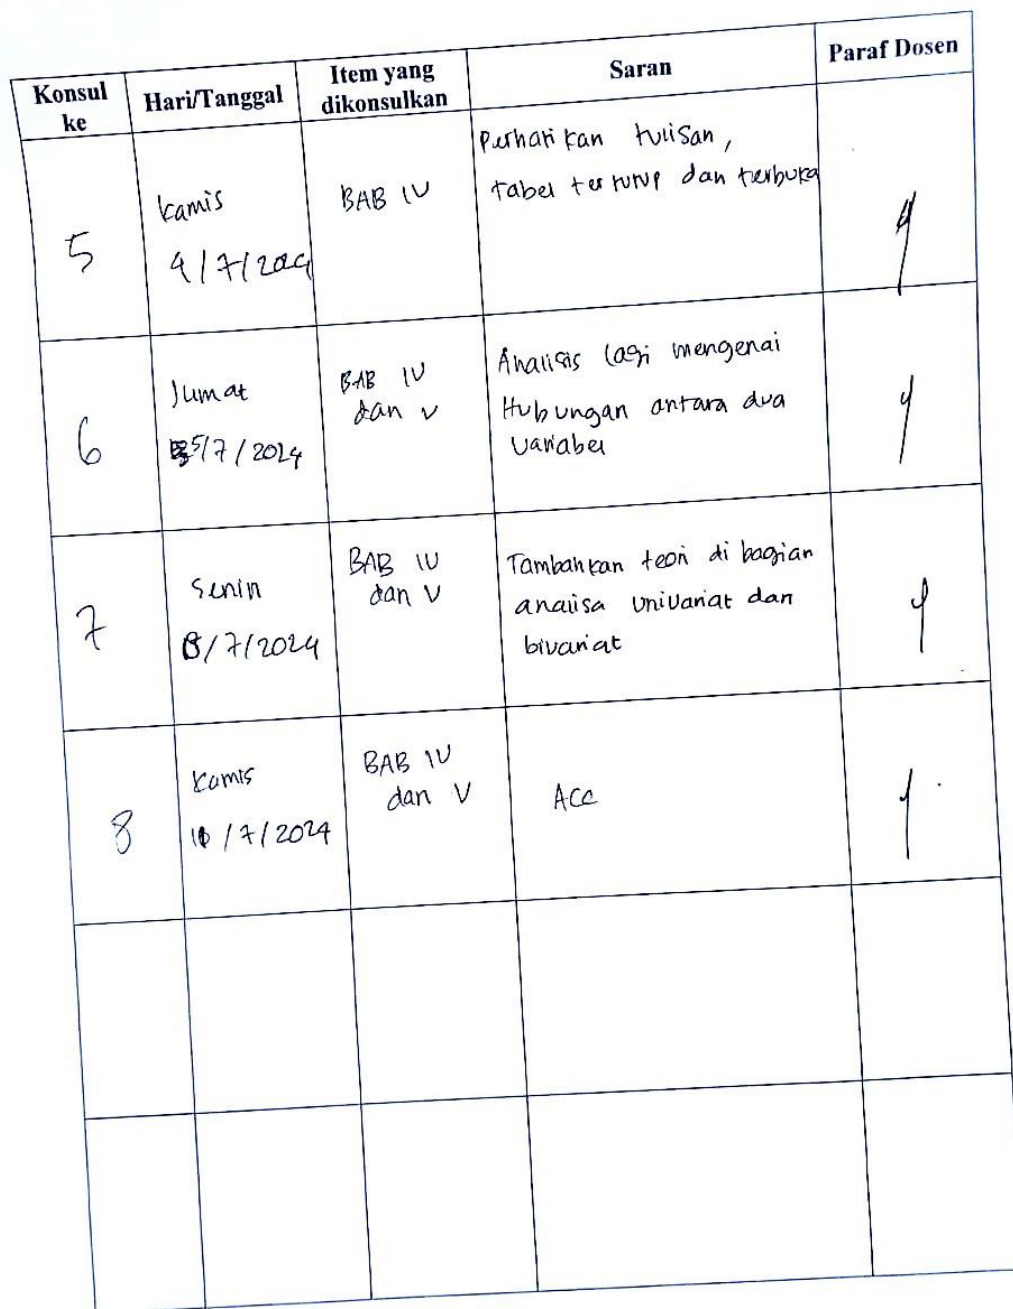 Konsul ke
Hari/Tanggal
Item yang dikonsulkan
Saran
Paraf Dosen
5
Kamis
4/7/2024
BAB IV
Perhatikan tulisan,
tabel tertutup dan terbuka
6
Jumat
5/7/2024
BAB IV
dan V
Analisis lagi mengenai
Hubungan antara dua
variabel
7
Senin
8/7/2024
BAB IV
dan V
Tambahkan teori di bagian
analisa univariat dan
bivariat
8
Kamis
/7/2024
BAB IV
dan V
Acc